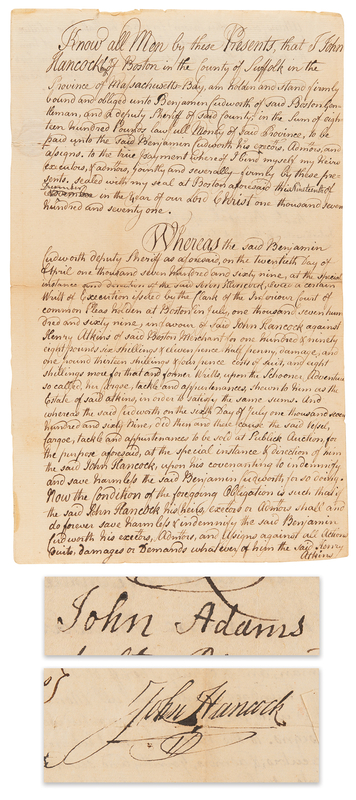 Know all Men by these Presents, that I John
Hancock Esq of Boston in the County of Suffolk in the
Province of Massachusetts Bay, am holden and stand firmly
bound and obliged unto Benjamin Cudworth of said Boston Gen-
tleman, and a deputy Sheriff of said County, in the Sum of eigh-
teen hundred Pounds lawfull Money of said Province, to be
paid unto the said Benjamin Cudworth his execors, Admors, and
assigns. to the true payment whereof I bind myself my Heirs
executors, & admors, jointly and severally firmly by these pre-
sents. sealed with my seal at Boston aforesaid this
in the Year of our Lord Christ one thousand seven
hundred and seventy one.
Whereas the said Benjamin
Cudworth deputy Sheriff as aforesaid, on the twentieth Day of
April one thousand seven Hundred and sixty nine, at the special
instance and direction of the said John Hancock, a certain
Writt of Execution issued by the Clerk of the Inferiour Court of
common Pleas holden at Boston in July, one thousand seven hun-
dred and sixty nine, in favour of said John Hancock against
Henry Atkins of said Boston Merchant for one hundred & ninety
eight pounds six shillings & eleven pence half penny, damage, and
one pound thirteen shillings & four pence costs of suit, and eight
shillings more for that and former Writts, upon the Schooner Adventure
so called, her Cargoe, tackle and appurtenances, shewn to him as the
Estate of said Atkins, in order to satisfy the same sums. And
whereas the said Cudworth on the sixth Day of July one thousand seven
hundred and sixty Nine, did then and there cause the said Vessel,
Cargoe, tackle and appurtenances to be sold at Publick Auction for
the purpose aforesaid, at the special instance & direction of him
the said John Hancock, upon his covenanting to indemnify
and save harmless the said Benjamin Cudworth for so doing.
Now the Condition of the foregoing Obligation is such that if
the said John Hancock his heirs, execors or Admors shall and
do forever save harmless & indemnify the said Benjamin
Cudworth his execors, Admors, and Assigns against all Actions
Suits, Damages or Demands whatever of him the said Henry
Atkins
John Adams
John Hancock